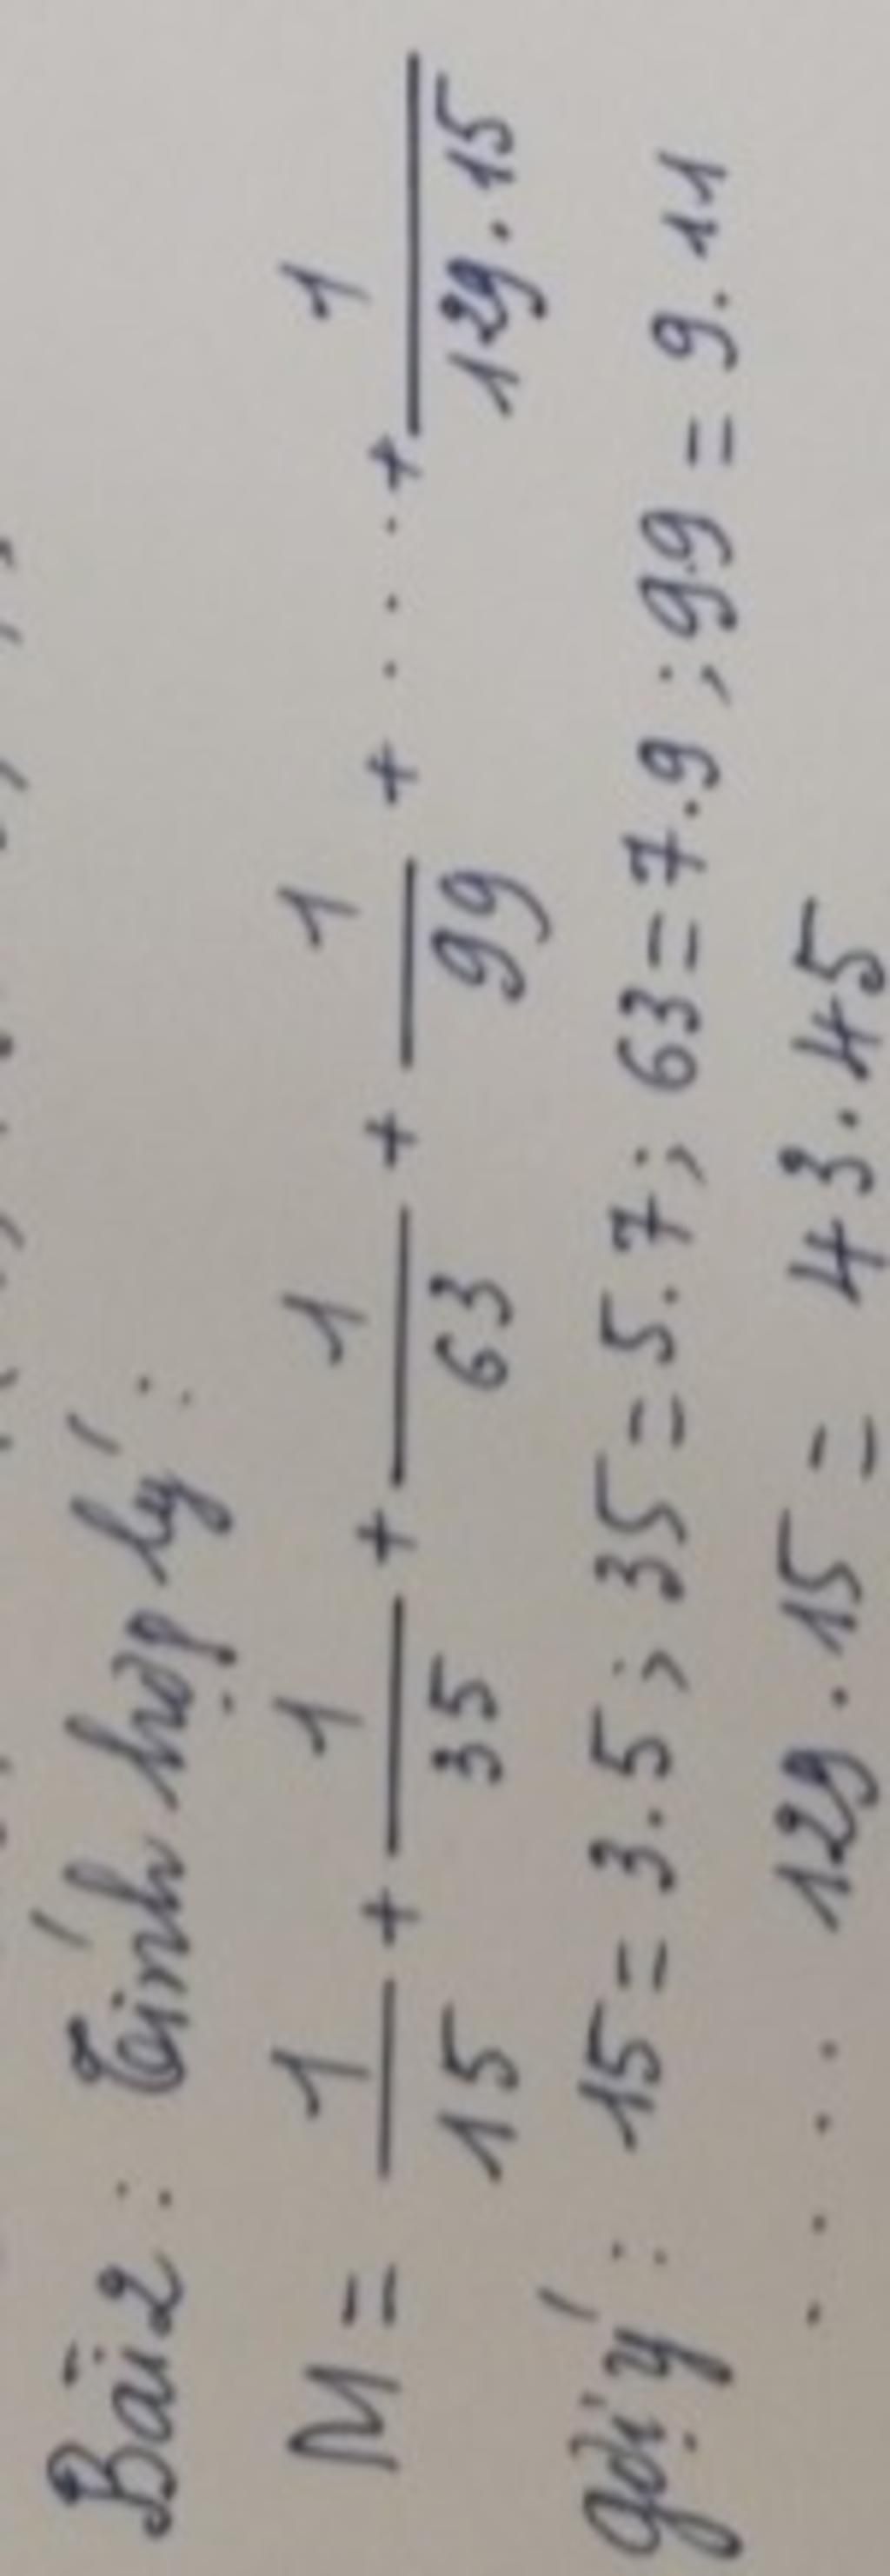 Bài 2: Tính hợp lý:
M = 1/15 + 1/35 + 1/63 + 1/99 + ... + 1/129.15
gợi ý: 15 = 3.5; 35 = 5.7; 63 = 7.9; 99 = 9.11
.... 129.15 = 43.45